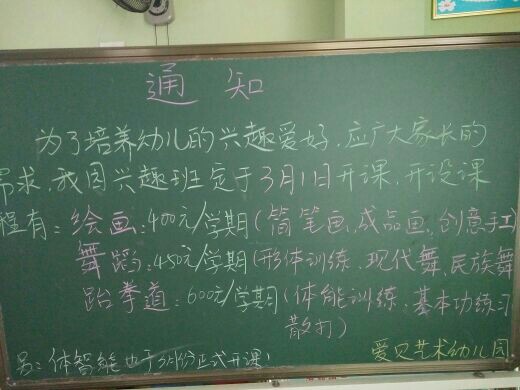 通 知
为了培养幼儿的兴趣爱好,应广大家长的
需求,我园兴趣班定于3月1日开课,开设课
程有:绘画:400元/学期(简笔画,成品画,创意手工)
舞蹈:450元/学期(形体训练,现代舞,民族舞
跆拳道:600元/学期(体能训练,基本功练习
散打)
另:体智能也于3月份正式开课!
爱贝艺术幼儿园